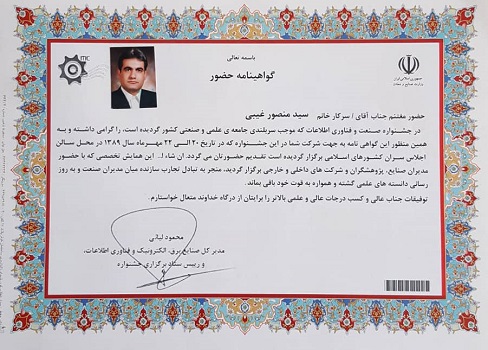 باسمه تعالی
گواهینامه حضور
جمهوری اسلامی ایران
وزارت صنایع و معادن
حضور مغتنم جناب آقای / سرکار خانم سید منصور غیبی
در جشنواره صنعت و فناوری اطلاعات که موجب سربلندی جامعه ی علمی و صنعتی کشور گردیده است، را گرامی داشته و به
همین منظور این گواهی نامه به جهت شرکت شما در این جشنواره که در تاریخ ۲۰ الی ۲۲ مهرماه سال ۱۳۸۹ در محل سالن
اجلاس سران کشورهای اسلامی برگزار گردیده است تقدیم حضورتان می گردد. ان شاء ا... این همایش تخصصی که با حضور
مدیران صنایع، پژوهشگران و شرکت های داخلی و خارجی برگزار گردید، منجر به تبادل تجارب سازنده میان مدیران صنعت و به روز
رسانی دانسته های علمی گشته و همواره به قوت خود باقی بماند.
توفیقات جناب عالی و کسب درجات عالی و علمی بالاتر را برایتان از درگاه خداوند متعال خواستارم.
محمود لیائی
مدیر کل صنایع برق، الکترونیک و فناوری اطلاعات،
و رییس ستاد برگزاری جشنواره